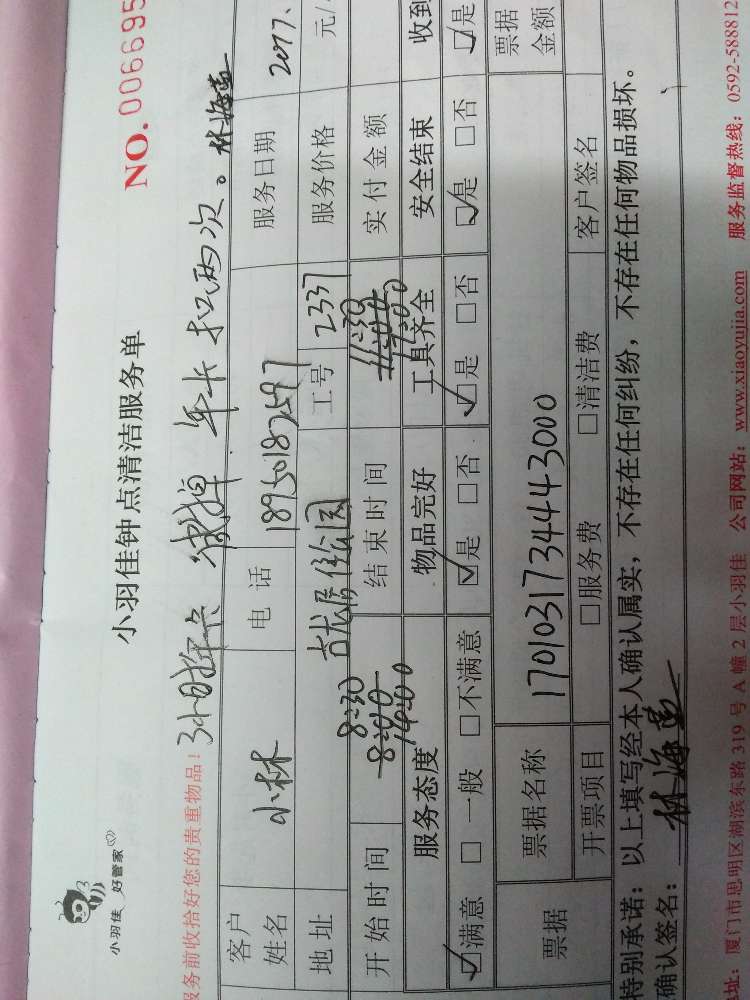 小羽佳 好管家
小羽佳钟点清洁服务单
NO. 006695
服务前收拾好您的贵重物品!
年卡 扣两次。林海燕
客户姓名 小林 电话 18950182597 服务日期 2017、
地址 工号 2337 服务价格 元/
开始时间 8:30 8:40 14:00 结束时间 11:30 实付金额
服务态度 物品完好 工具齐全 安全结束 收到
☑满意 □一般 □不满意 ☑是 □否 ☑是 □否 ☑是 □否 ☑是
票据 票据名称 17010317344443000 票据金额
开票项目 □服务费 □清洁费 客户签名
特别承诺：以上填写经本人确认属实，不存在任何纠纷，不存在任何物品损坏。
确认签名：林海燕
址：厦门市思明区湖滨东路 319 号 A 幢 2 层小羽佳 公司网站：www.xiaoyujia.com 服务监督热线：0592-588812